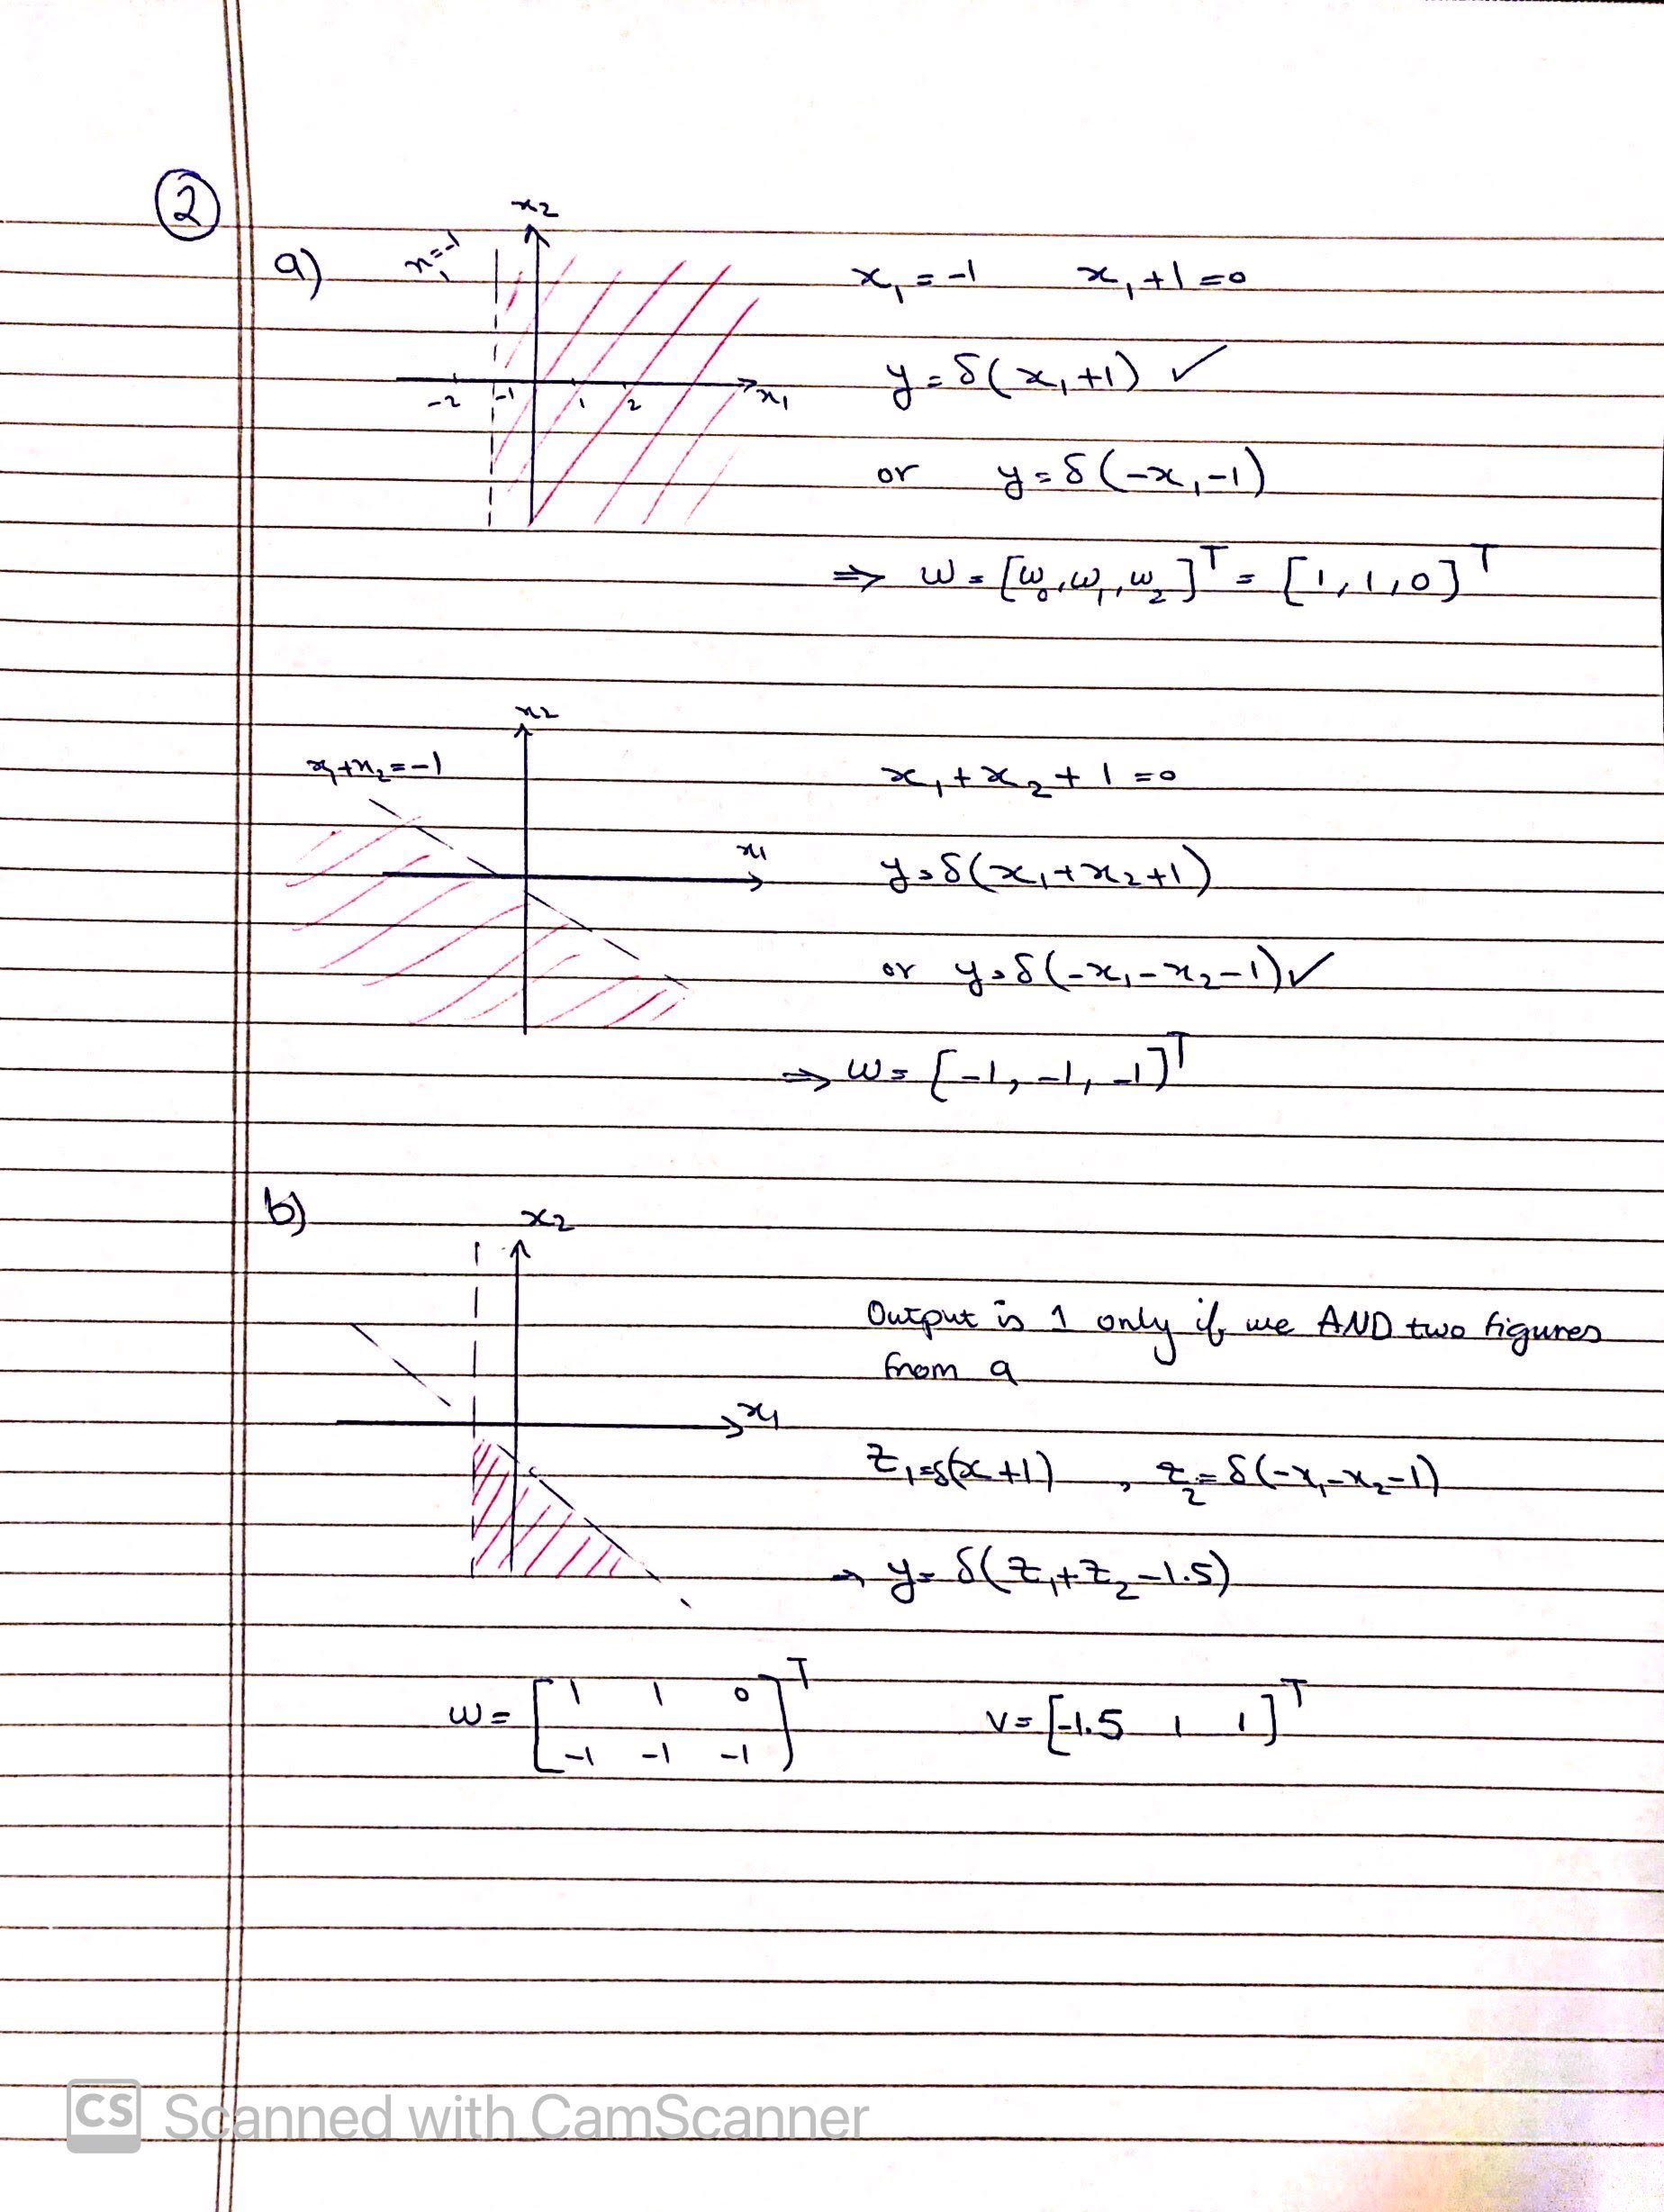 ②
a)
x2
x₁=-1
-2 -1 1 2 x₁
x₁ = -1 x₁+1=0
y = δ(x₁+1) ✓
or y = δ(-x₁-1)
⇒ w = [w₀, w₁, w₂]ᵀ = [1, 1, 0]ᵀ
x2
x₁+x₂=-1
x1
x₁+x₂+1=0
y=δ(x₁+x₂+1)
or y=δ(-x₁-x₂-1) ✓
⇒ w= [-1, -1, -1]ᵀ
b)
x2
x1
Output is 1 only if we AND two figures
from a
z₁=δ(x+1) , z₂=δ(-x₁-x₂-1)
→ y= δ(z₁+z₂-1.5)
w= [1 1 0
-1 -1 -1]ᵀ
v= [-1.5 1 1]ᵀ
CS Scanned with CamScanner